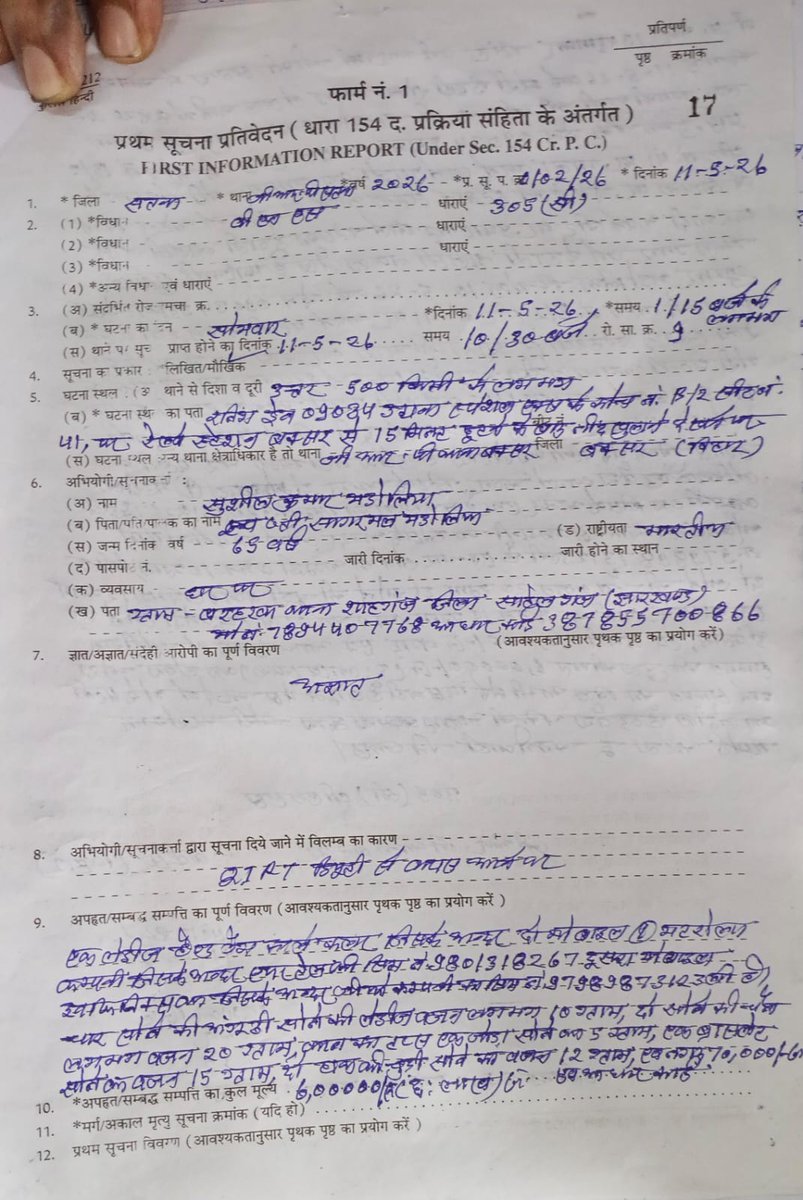 प्रतिपर्ण
पृष्ठ क्रमांक
212
हिन्दी
फार्म नं. 1
17
प्रथम सूचना प्रतिवेदन ( धारा 154 द. प्रक्रिया संहिता के अंतर्गत )
FIRST INFORMATION REPORT (Under Sec. 154 Cr. P. C.)
1. * जिला सतना * थाना जीआरपी सतना *वर्ष 2026 *प्र. सू. प. क्र. 0/02/26 * दिनांक 11-5-26
2. (1) *विधान बी एन एस धाराएं 305 (सी)
(2) *विधान धाराएं
(3) *विधान धाराएं
(4) *अन्य विधान एवं धाराएं
3. (अ) संदर्भित रोजनामचा क्र.
(ब) * घटना का दिन सोमवार *दिनांक 11-5-26 *समय 1/15 बजे के लगभग
(स) थाने पर सूचना प्राप्त होने का दिनांक 11-5-26 समय 10/30 बजे रो. सा. क्र. 9
4. सूचना का प्रकार : लिखित/मौखिक
5. घटना स्थल : (अ) थाने से दिशा व दूरी उत्तर - 500 किमी के लगभग
(ब) * घटना स्थल का पता ट्रेन 09034 स्पेशल के कोच नं. B/2 सीट नं.
41, पर रेल्वे स्टेशन बक्सर से 15 मिनट
(स) घटना स्थल अन्य थाना क्षेत्राधिकार है तो थाना जी आर पी थाना बक्सर जिला बक्सर (बिहार)
6. अभियोगी/सूचनाकर्ता :
(अ) नाम सुशील कुमार भडोलिया
(ब) पिता/पति/पालक का नाम स्व श्री सागरमल भडोलिया
(स) जन्म दिनांक वर्ष 65 वर्ष (ड) राष्ट्रीयता भारतीय
(द) पासपोर्ट नं. जारी दिनांक जारी होने का स्थान
(क) व्यवसाय
(ख) पता ग्राम - बरहरवा थाना जिला साहेबगंज (झारखण्ड)
मो नं. 7894407768 आधार कार्ड 387855700866
(आवश्यकतानुसार पृथक पृष्ठ का प्रयोग करें)
7. ज्ञात/अज्ञात/संदेही आरोपी का पूर्ण विवरण
अज्ञात
8. अभियोगी/सूचनाकर्त्ता द्वारा सूचना दिये जाने में विलम्ब का कारण
से वापस आने पर
9. अपहृत/सम्बद्ध सम्पत्ति का पूर्ण विवरण (आवश्यकतानुसार पृथक पृष्ठ का प्रयोग करें )
एक लेडीज हैण्ड बैग काले कलर जिसके अन्दर दो मोबाइल (1) मटरोला
कम्पनी जिसके अन्दर एयरटेल की सिम नं 9801318267 दूसरा मोबाइल
जिसके अन्दर कम्पनी का सिम नं 9798987312
चार सोने की अंगूठी सोने की लेडीज वजन लगभग 10 ग्राम, दो सोने की चैन
लगभग वजन 20 ग्राम, कान का टप्स एक जोड़ा सोने का 5 ग्राम, एक ब्रासलेट
सोने का वजन 15 ग्राम, दो सोने का वजन 12 ग्राम, एवं नगद 70,000/-
10. *अपहृत/सम्बद्ध सम्पत्ति का कुल मूल्य 6,00000/- (छः लाख) रु. एवं आधार कार्ड
11. *मर्ग/अकाल मृत्यु सूचना क्रमांक (यदि हो)
12. प्रथम सूचना विवरण (आवश्यकतानुसार पृथक पृष्ठ का प्रयोग करें )